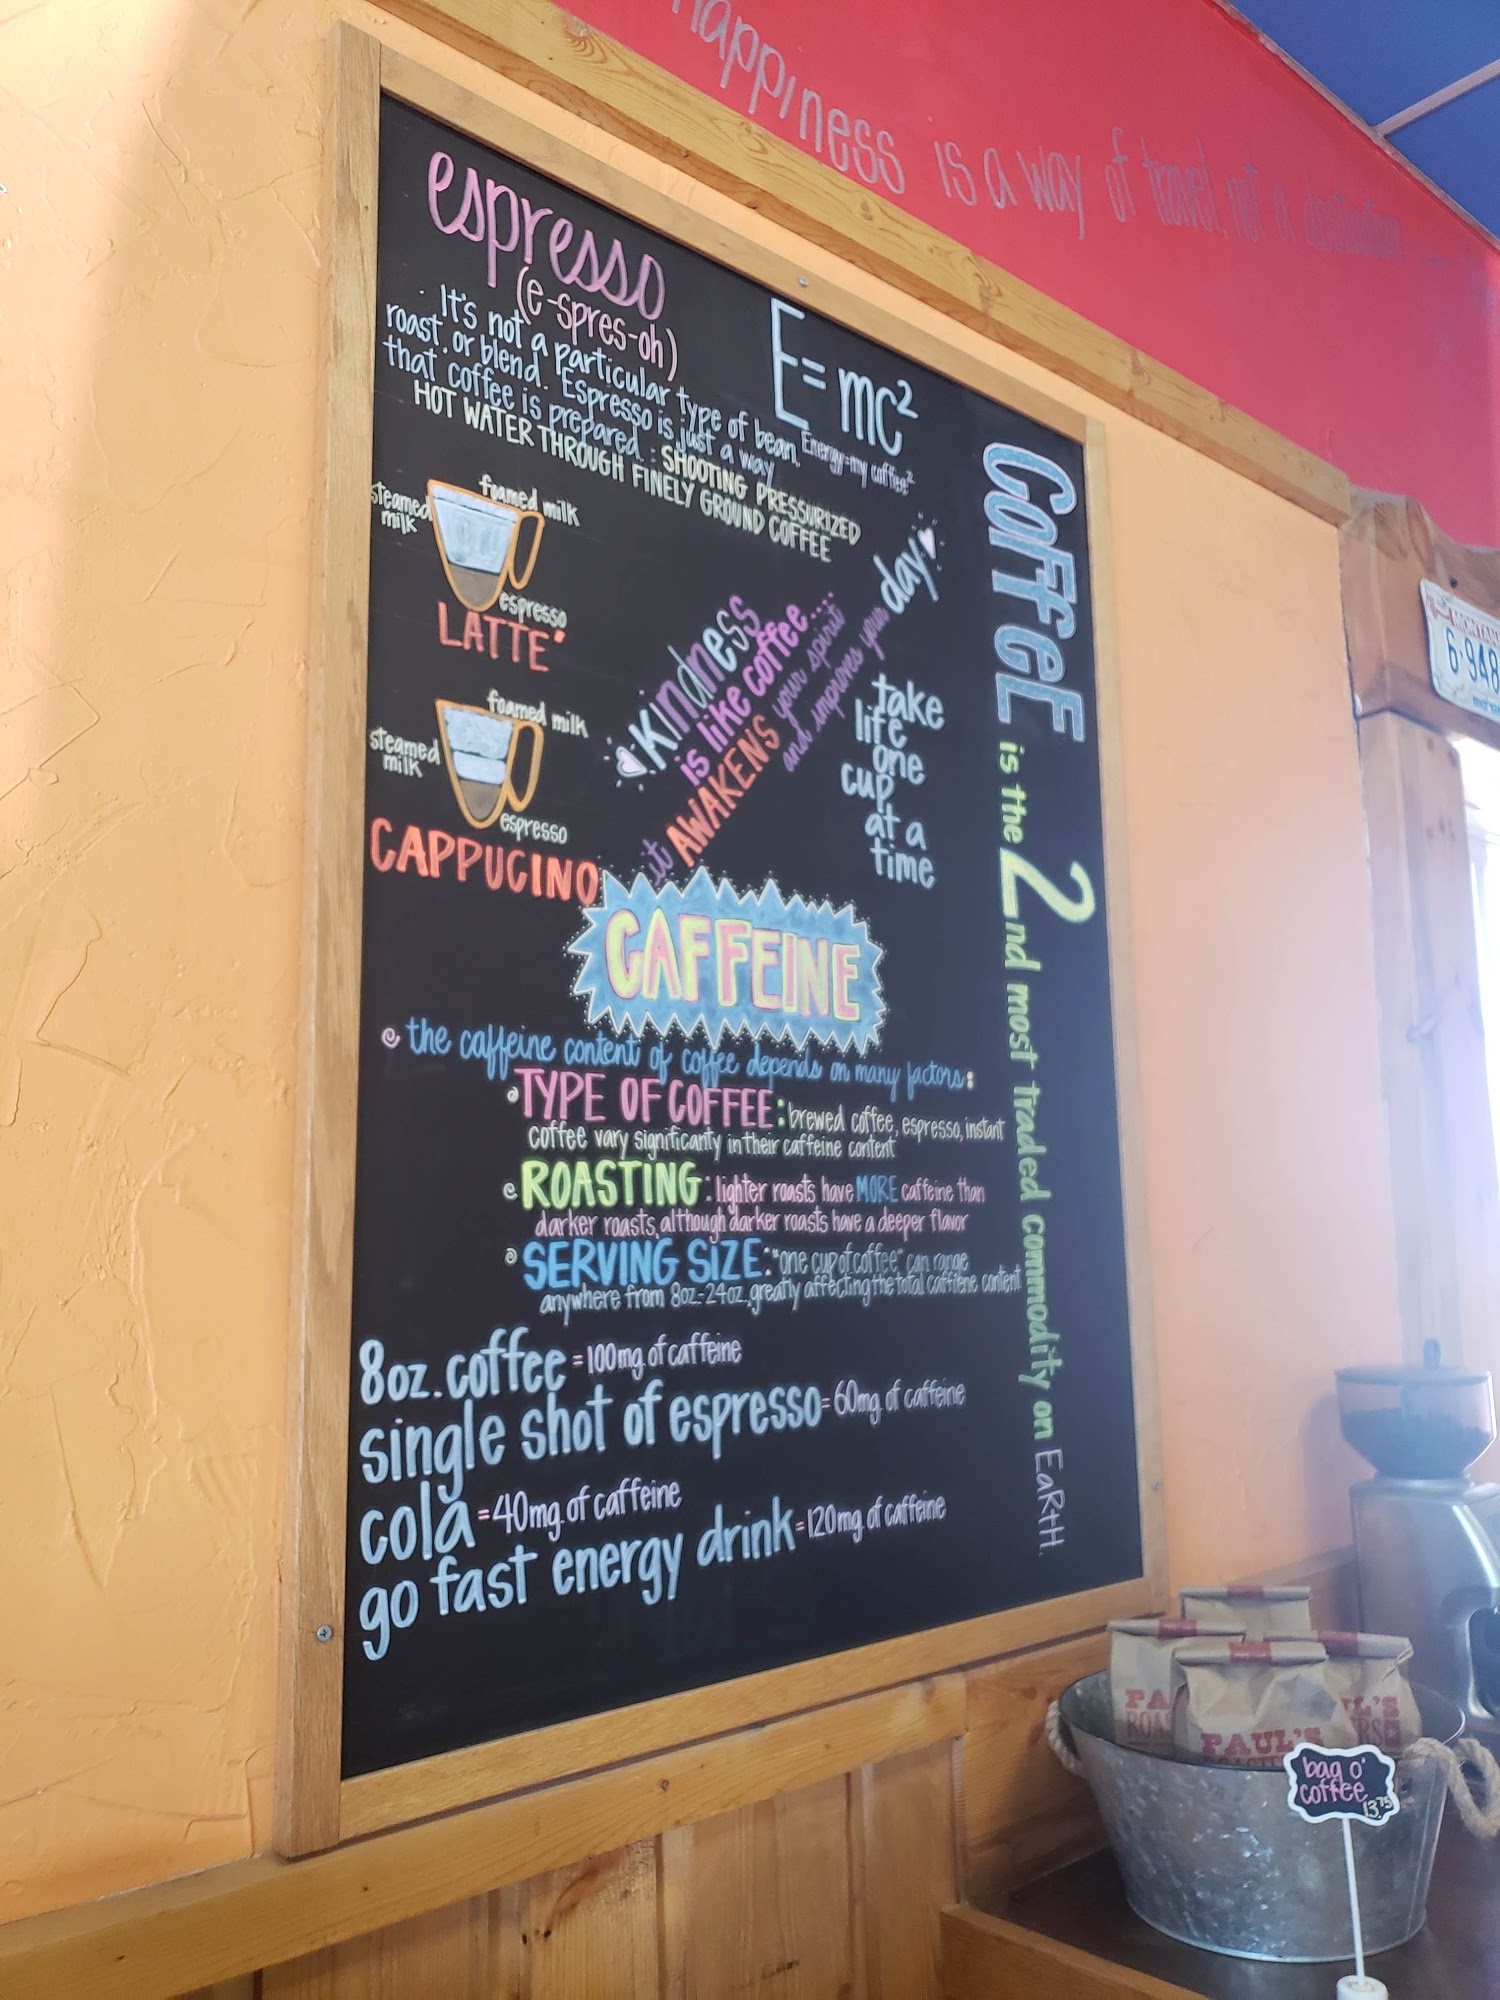 happiness is a way of travel, not a destination
espresso
(e-spres-oh)
· It's not a particular type of bean.
roast or blend. Espresso is just a way
that coffee is prepared: SHOOTING PRESSURIZED
HOT WATER THROUGH FINELY GROUND COFFEE
E=mc²
Energy=my coffee²
steamed
milk
foamed milk
espresso
LATTE'
steamed
milk
foamed milk
espresso
CAPPUCINO
Kindness
is like coffee....
it AWAKENS your spirit
and improves your day
take
life
one
cup
at a
time
COFFEE is the 2nd most traded commodity on EaRtH.
CAFFEINE
the caffeine content of coffee depends on many factors:
TYPE OF COFFEE: brewed coffee, espresso, instant
coffee vary significantly in their caffeine content
ROASTING: lighter roasts have MORE caffeine than
darker roasts, although darker roasts have a deeper flavor
SERVING SIZE: "one cup of coffee" can range
anywhere from 8oz.-24oz., greatly affecting the total caffiene content
8oz. coffee = 100mg. of caffeine
single shot of espresso = 60mg. of caffeine
cola = 40mg. of caffeine
go fast energy drink = 120mg. of caffeine
MONTANA
6·948
PAUL'S
bag o'
coffee
13.75